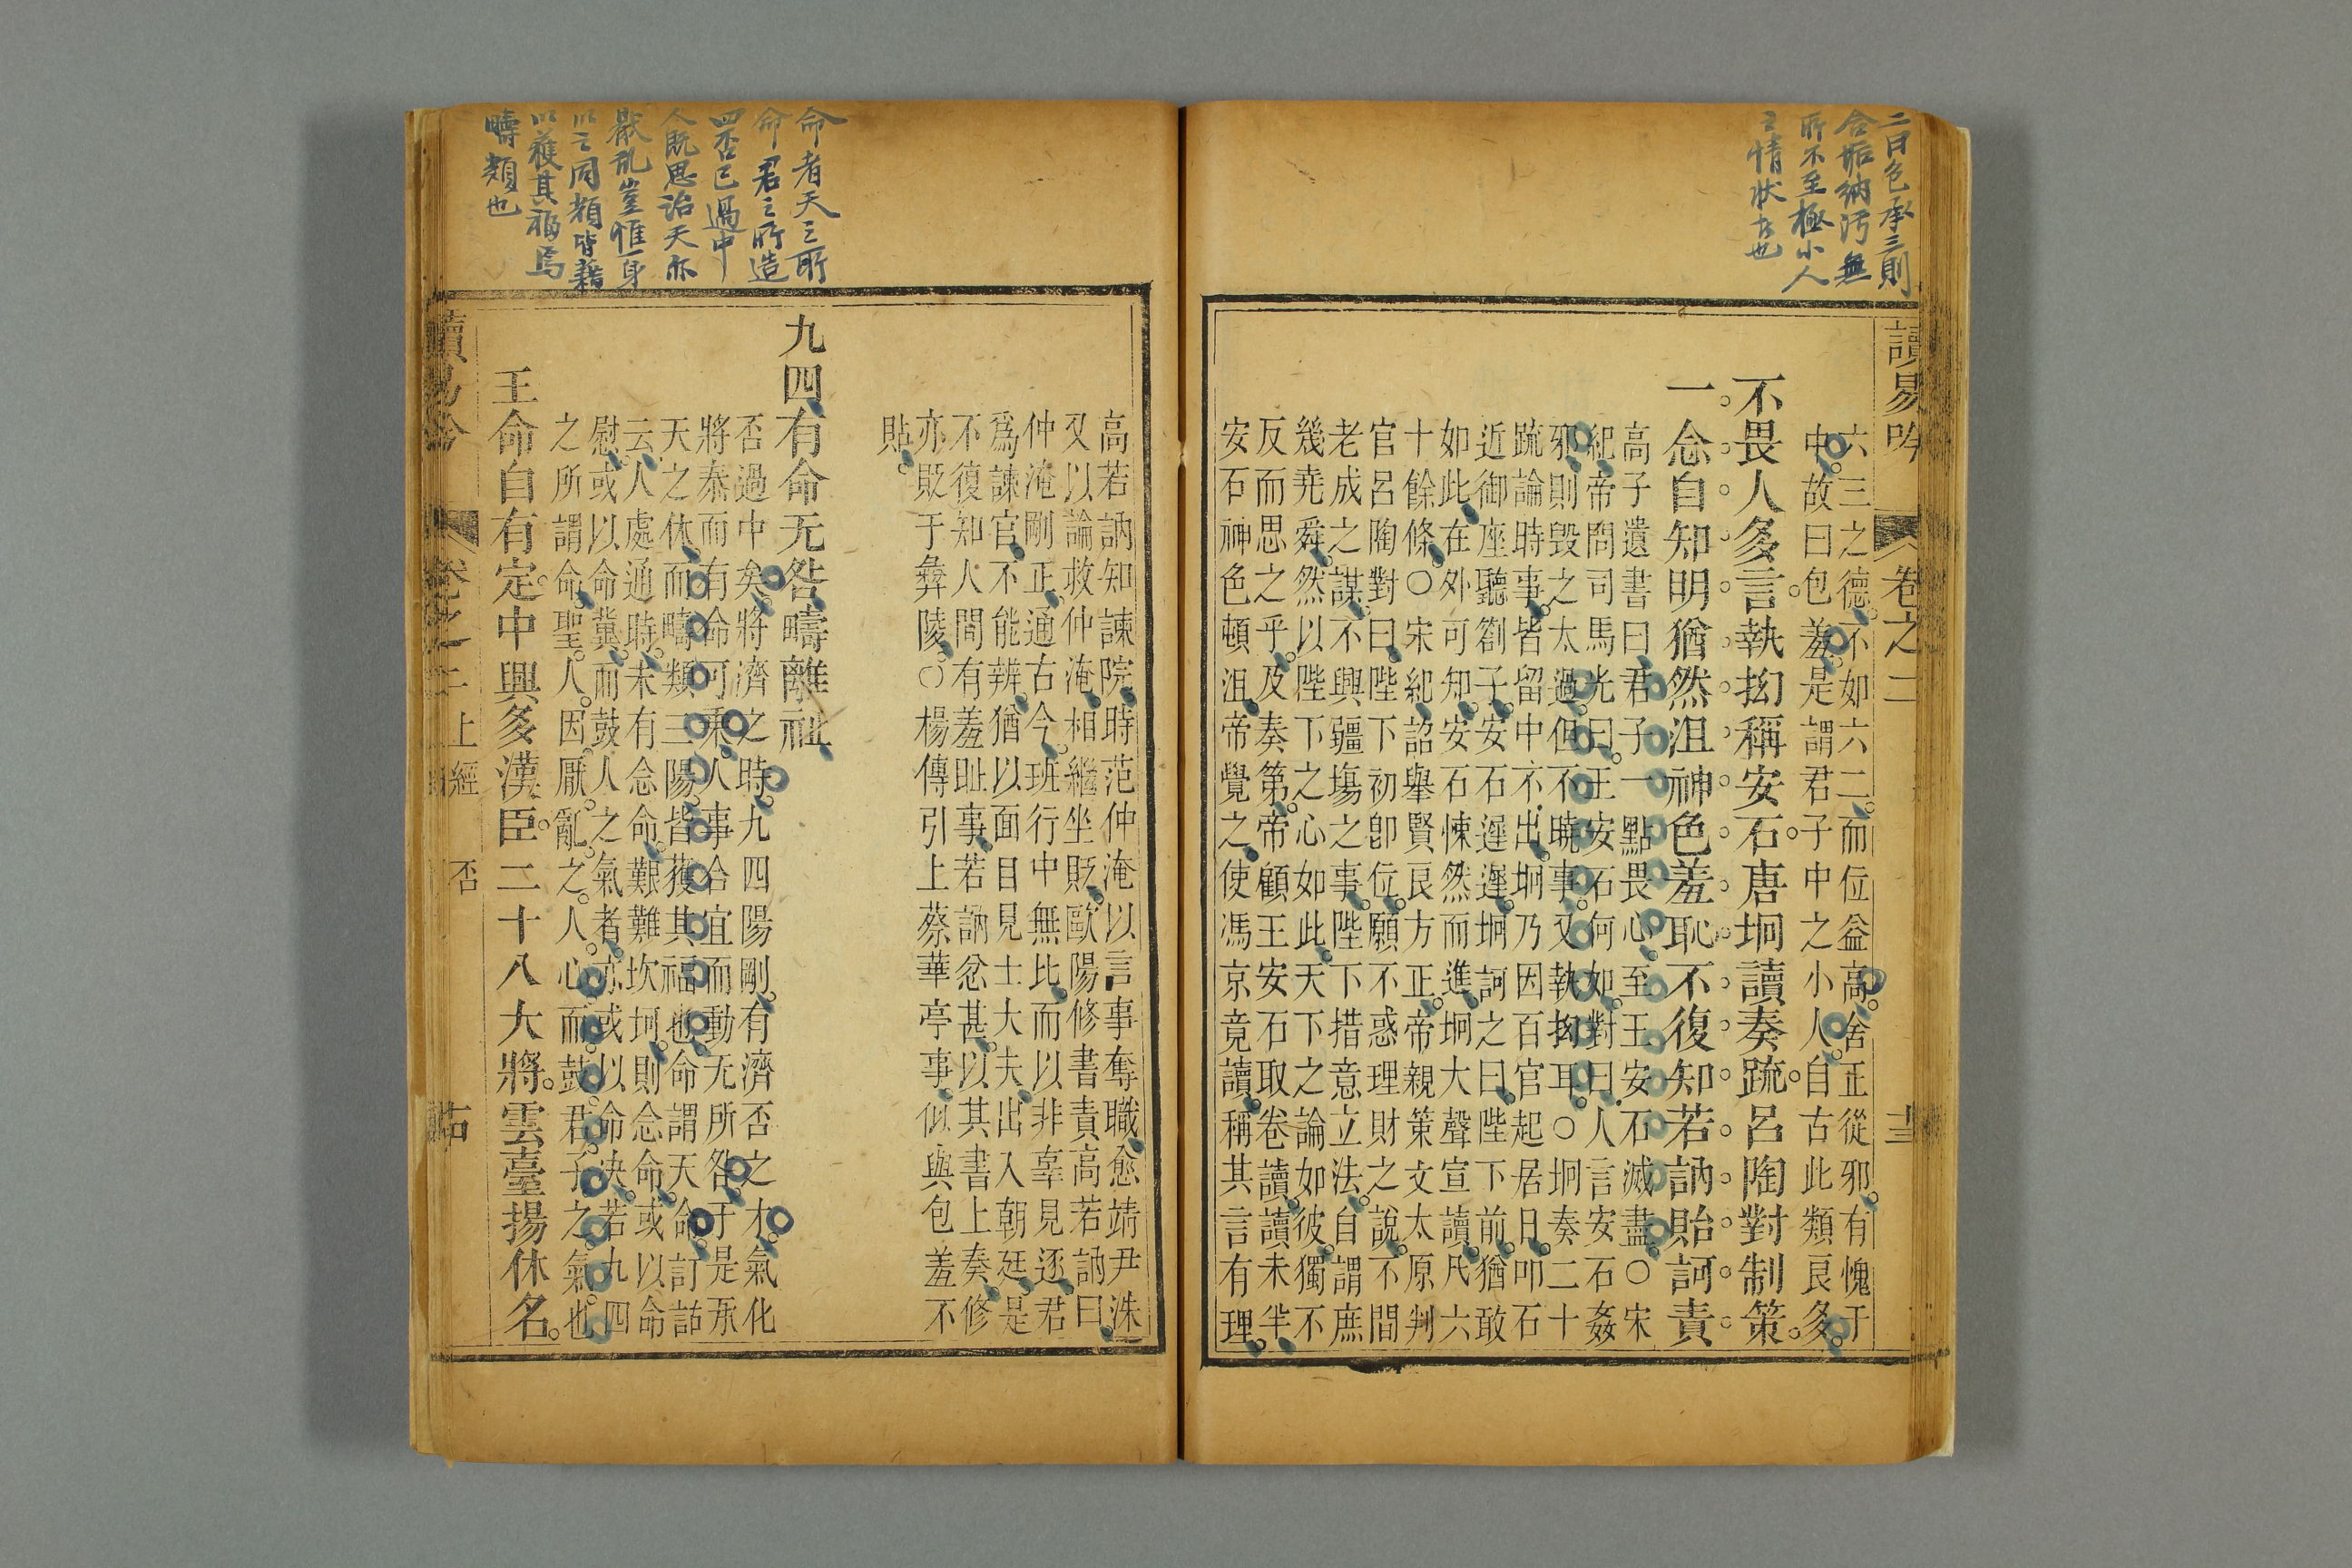 二曰包承三則
含垢納污無
所不至極小人
之情狀者也
讀易吟 卷之二 十三
六三之德不如六二而位益高舍正從邪有愧于
中故曰包羞是謂君子中之小人自古此類良多
不畏人多言執拗稱安石唐坰讀奏䟽呂陶對制策
一念自知明猶然沮神色羞恥不復知若訥貽訶責
高子遺書曰君子一點畏心至王安石滅盡○宋
紀帝問司馬光曰王安石何如對曰人言安石姦
邪則毀之太過但不曉事又執拗耳○坰奏二十
䟽論時事皆留中不出坰乃因百官起居日叩石
近御座聽劄子安石遲遲坰訶之曰陛下前猶敢
如此在外可知安石悚然而進坰大聲宣讀凡六
十餘條○宋紀詔舉賢良方正帝親策文太原判
官呂陶對曰陛下初卽位願不惑理財之說不間
老成之謀不興疆埸之事陛下措意立法自謂庶
幾堯舜然以陛下之心如此天下之論如彼獨不
反而思之乎及奏第帝顧王安石取卷讀讀未半
安石神色頓沮帝覺之使馮京竟讀稱其言有理
高若訥知諫院時范仲淹以言事奪職愈靖尹洙
又以論救仲淹相繼坐貶歐陽修書責高若訥曰
仲淹剛正通古今班行中無比而以非辜見逐君
爲諫官不能辨猶以面目見士大夫出入朝廷是
不復知人間有羞恥事若訥忿甚以其書上奏修
亦貶于彝陵○楊傳引上蔡華亭事似與包羞不
貼
命者天之所
命君之所造
四否已過中
人既思治天亦
厭亂豈惟一身
以之同類皆藉
以獲其福焉
疇類也
九四有命无咎疇離祉
否過中矣將濟之時九四陽剛有濟否之才氣化
將泰而有命可乘人事合宜而動无所咎于是承
天之休而疇類三陽皆獲其福也命謂天命訂詁
云人處通時未有念命艱難坎坷則念命或以命
慰或以命冀而鼓人之氣者亦或以命决若九四
之所謂命聖人因厭亂之人心而鼓君子之氣也
王命自有定中興多漢臣二十八大將雲臺揚休名
讀易吟 卷之二 上經 否 十四